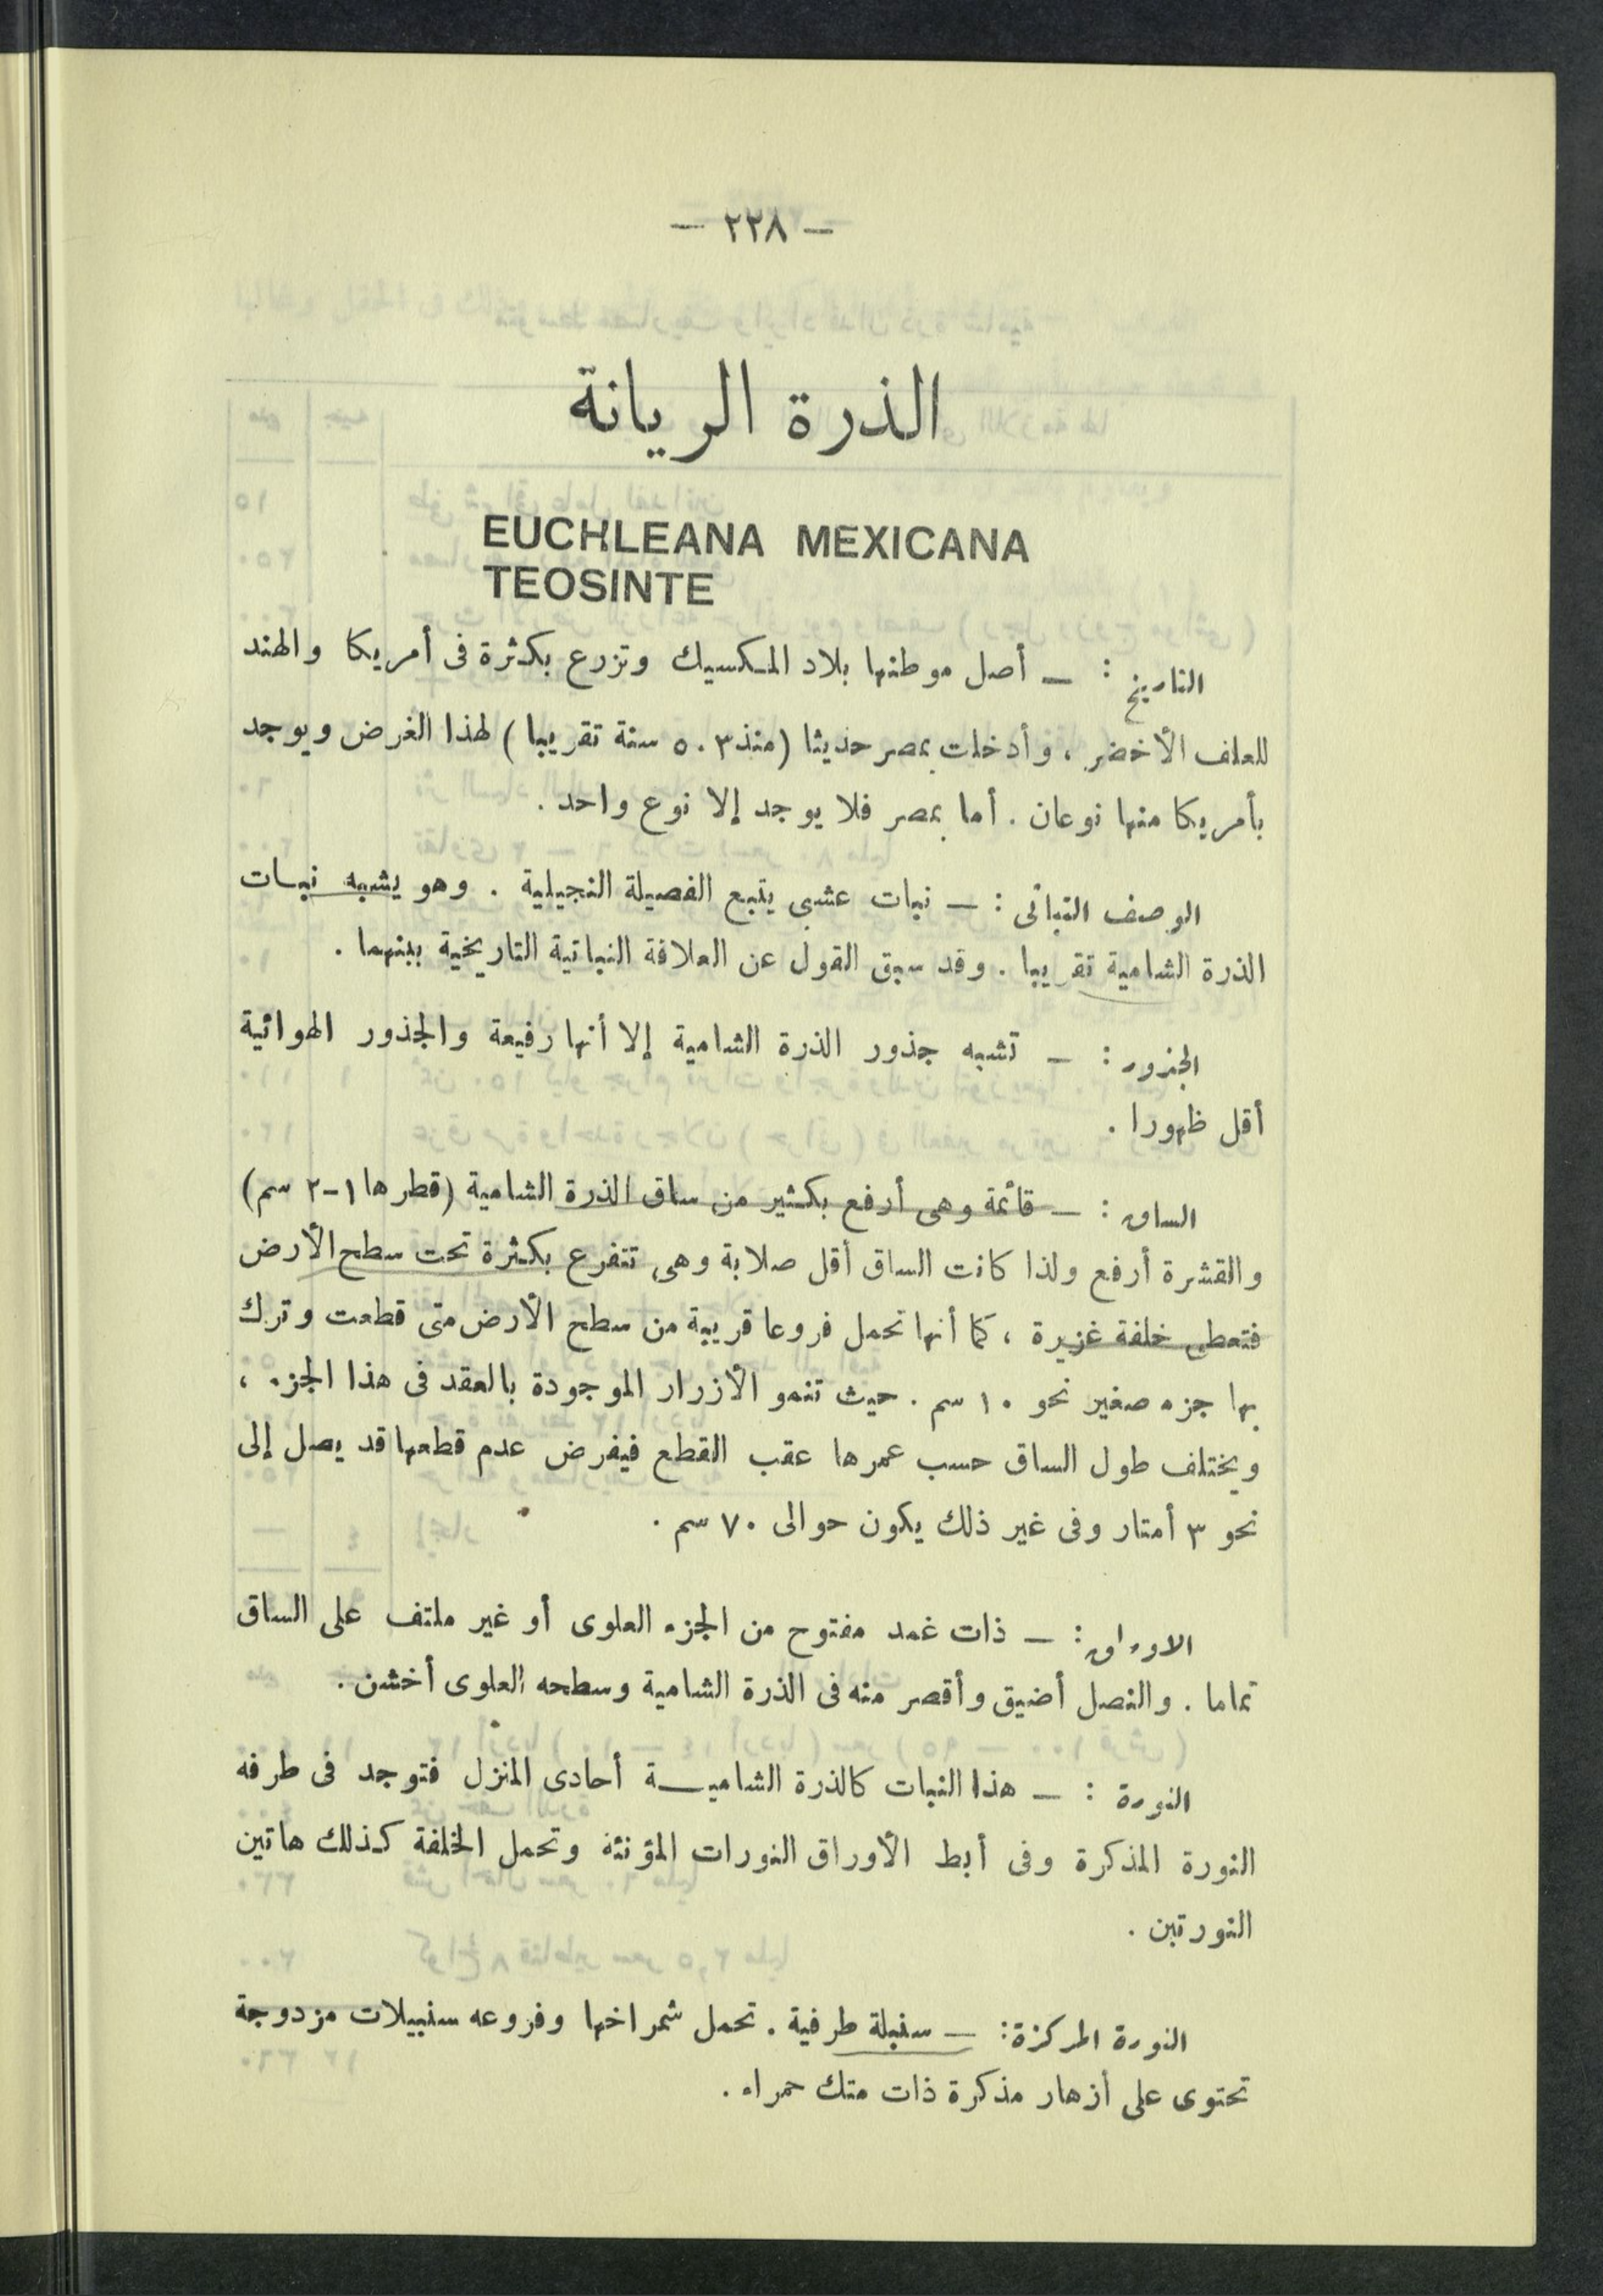 — ٢٢٨ —
الذرة الريانة
EUCHLEANA MEXICANA
TEOSINTE
التاريخ : — أصل موطنها بلاد المكسيك وتزرع بكثرة فى أمريكا والهند
للعلف الأخضر ، وأدخلت بمصر حديثا (منذ ٥٠٣ سنة تقريبا) لهذا الغرض ويوجد
بأمريكا منها نوعان . أما بمصر فلا يوجد إلا نوع واحد .
الوصف النباتى : — نبات عشبى يتبع الفصيلة النجيلية . وهو يشبه نبات
الذرة الشامية تقريبا . وقد سبق القول عن العلاقة النباتية التاريخية بينهما .
الجذور : — تشبه جذور الذرة الشامية إلا أنها رفيعة والجذور الهوائية
أقل ظهورا .
الساق : — قائمة وهى أرفع بكثير من ساق الذرة الشامية (قطرها ١-٢ سم)
والقشرة أرفع ولذا كانت الساق أقل صلابة وهى تتفرع بكثرة تحت سطح الأرض
فتعطى خلفة غزيرة ، كما أنها تحمل فروعا قريبة من سطح الأرض متى قطعت وترك
بها جزء صغير نحو ١٠ سم . حيث تنمو الأزرار الموجودة بالعقد فى هذا الجزء ،
ويختلف طول الساق حسب عمرها عقب القطع فيفرض عدم قطعها قد يصل إلى
نحو ٣ أمتار وفى غير ذلك يكون حوالى ٧٠ سم .
الاوراق : — ذات غمد مفتوح من الجزء العلوى أو غير ملتف على الساق
تماما . والنصل أضيق وأقصر منه فى الذرة الشامية وسطحه العلوى أخشن .
النورة : — هذا النبات كالذرة الشامية أحادى المنزل فتوجد فى طرفه
النورة المذكرة وفى أبط الأوراق النورات المؤنثة وتحمل الخلفة كذلك هاتين
النورتين .
النورة المركزة : — سنبلة طرفية . تحمل شمراخها وفروعه سنبيلات مزدوجة
تحتوى على أزهار مذكرة ذات متك حمراء .